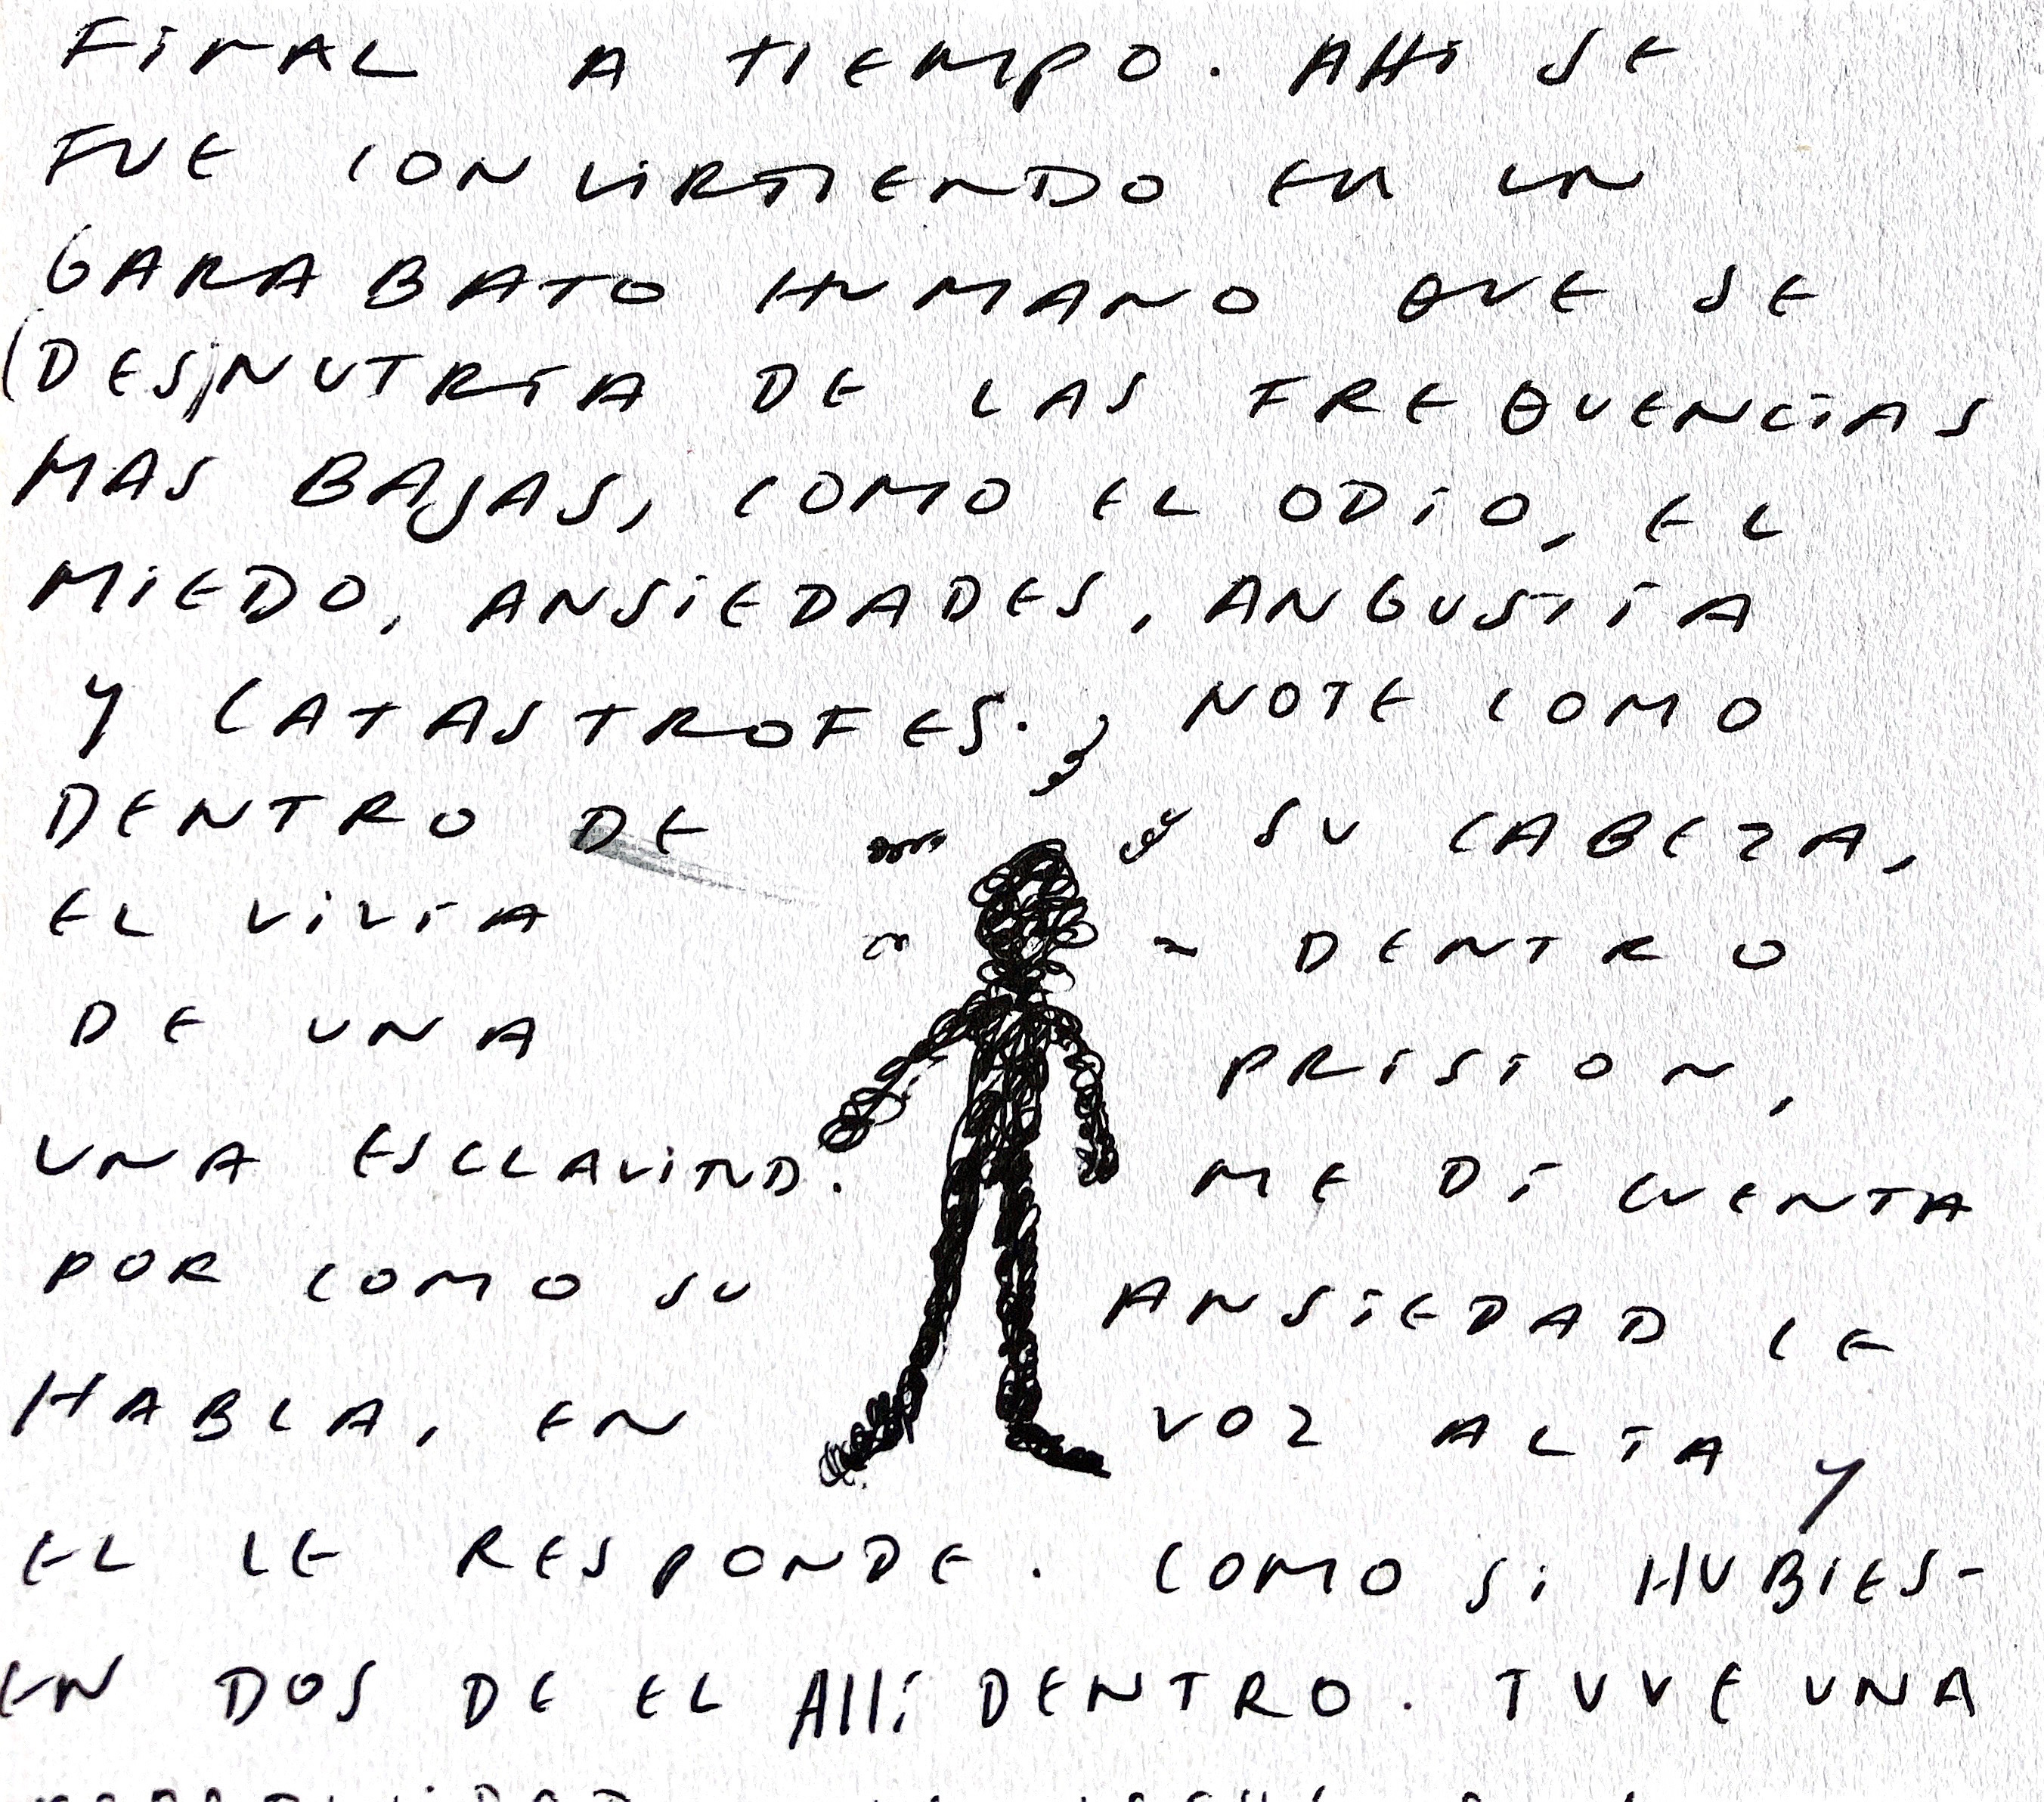 FINAL A TIEMPO. AHI SE
FUE CONVIRTIENDO EN UN
GARABATO HUMANO QUE SE
(DES)NUTRIA DE LAS FREQUENCIAS
MAS BAJAS, COMO EL ODIO, EL
MIEDO, ANSIEDADES, ANGUSTIA
Y CATASTROFES. NOTE COMO
DENTRO DE SU CABEZA,
EL VIVIA DENTRO
DE UNA PRISION,
UNA ESCLAVITUD. ME DI CUENTA
POR COMO SU ANSIEDAD LE
HABLA, EN VOZ ALTA Y
EL LE RESPONDE. COMO SI HUBIES-
EN DOS DE EL AllÍ DENTRO. TUVE UNA